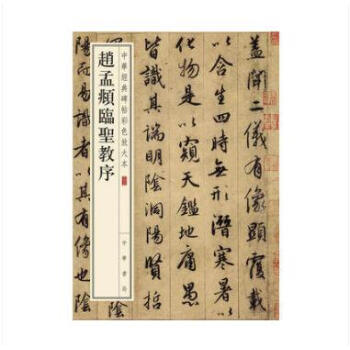 蓋聞二儀有像顯覆載
以含生四時無形潛寒暑
是以窺天鑑地庸愚
皆識其端明陰洞陽賢哲
中華經典碑帖彩色放大本
趙孟頫臨聖教序
中華書局
陽而易識者以其有像也陰